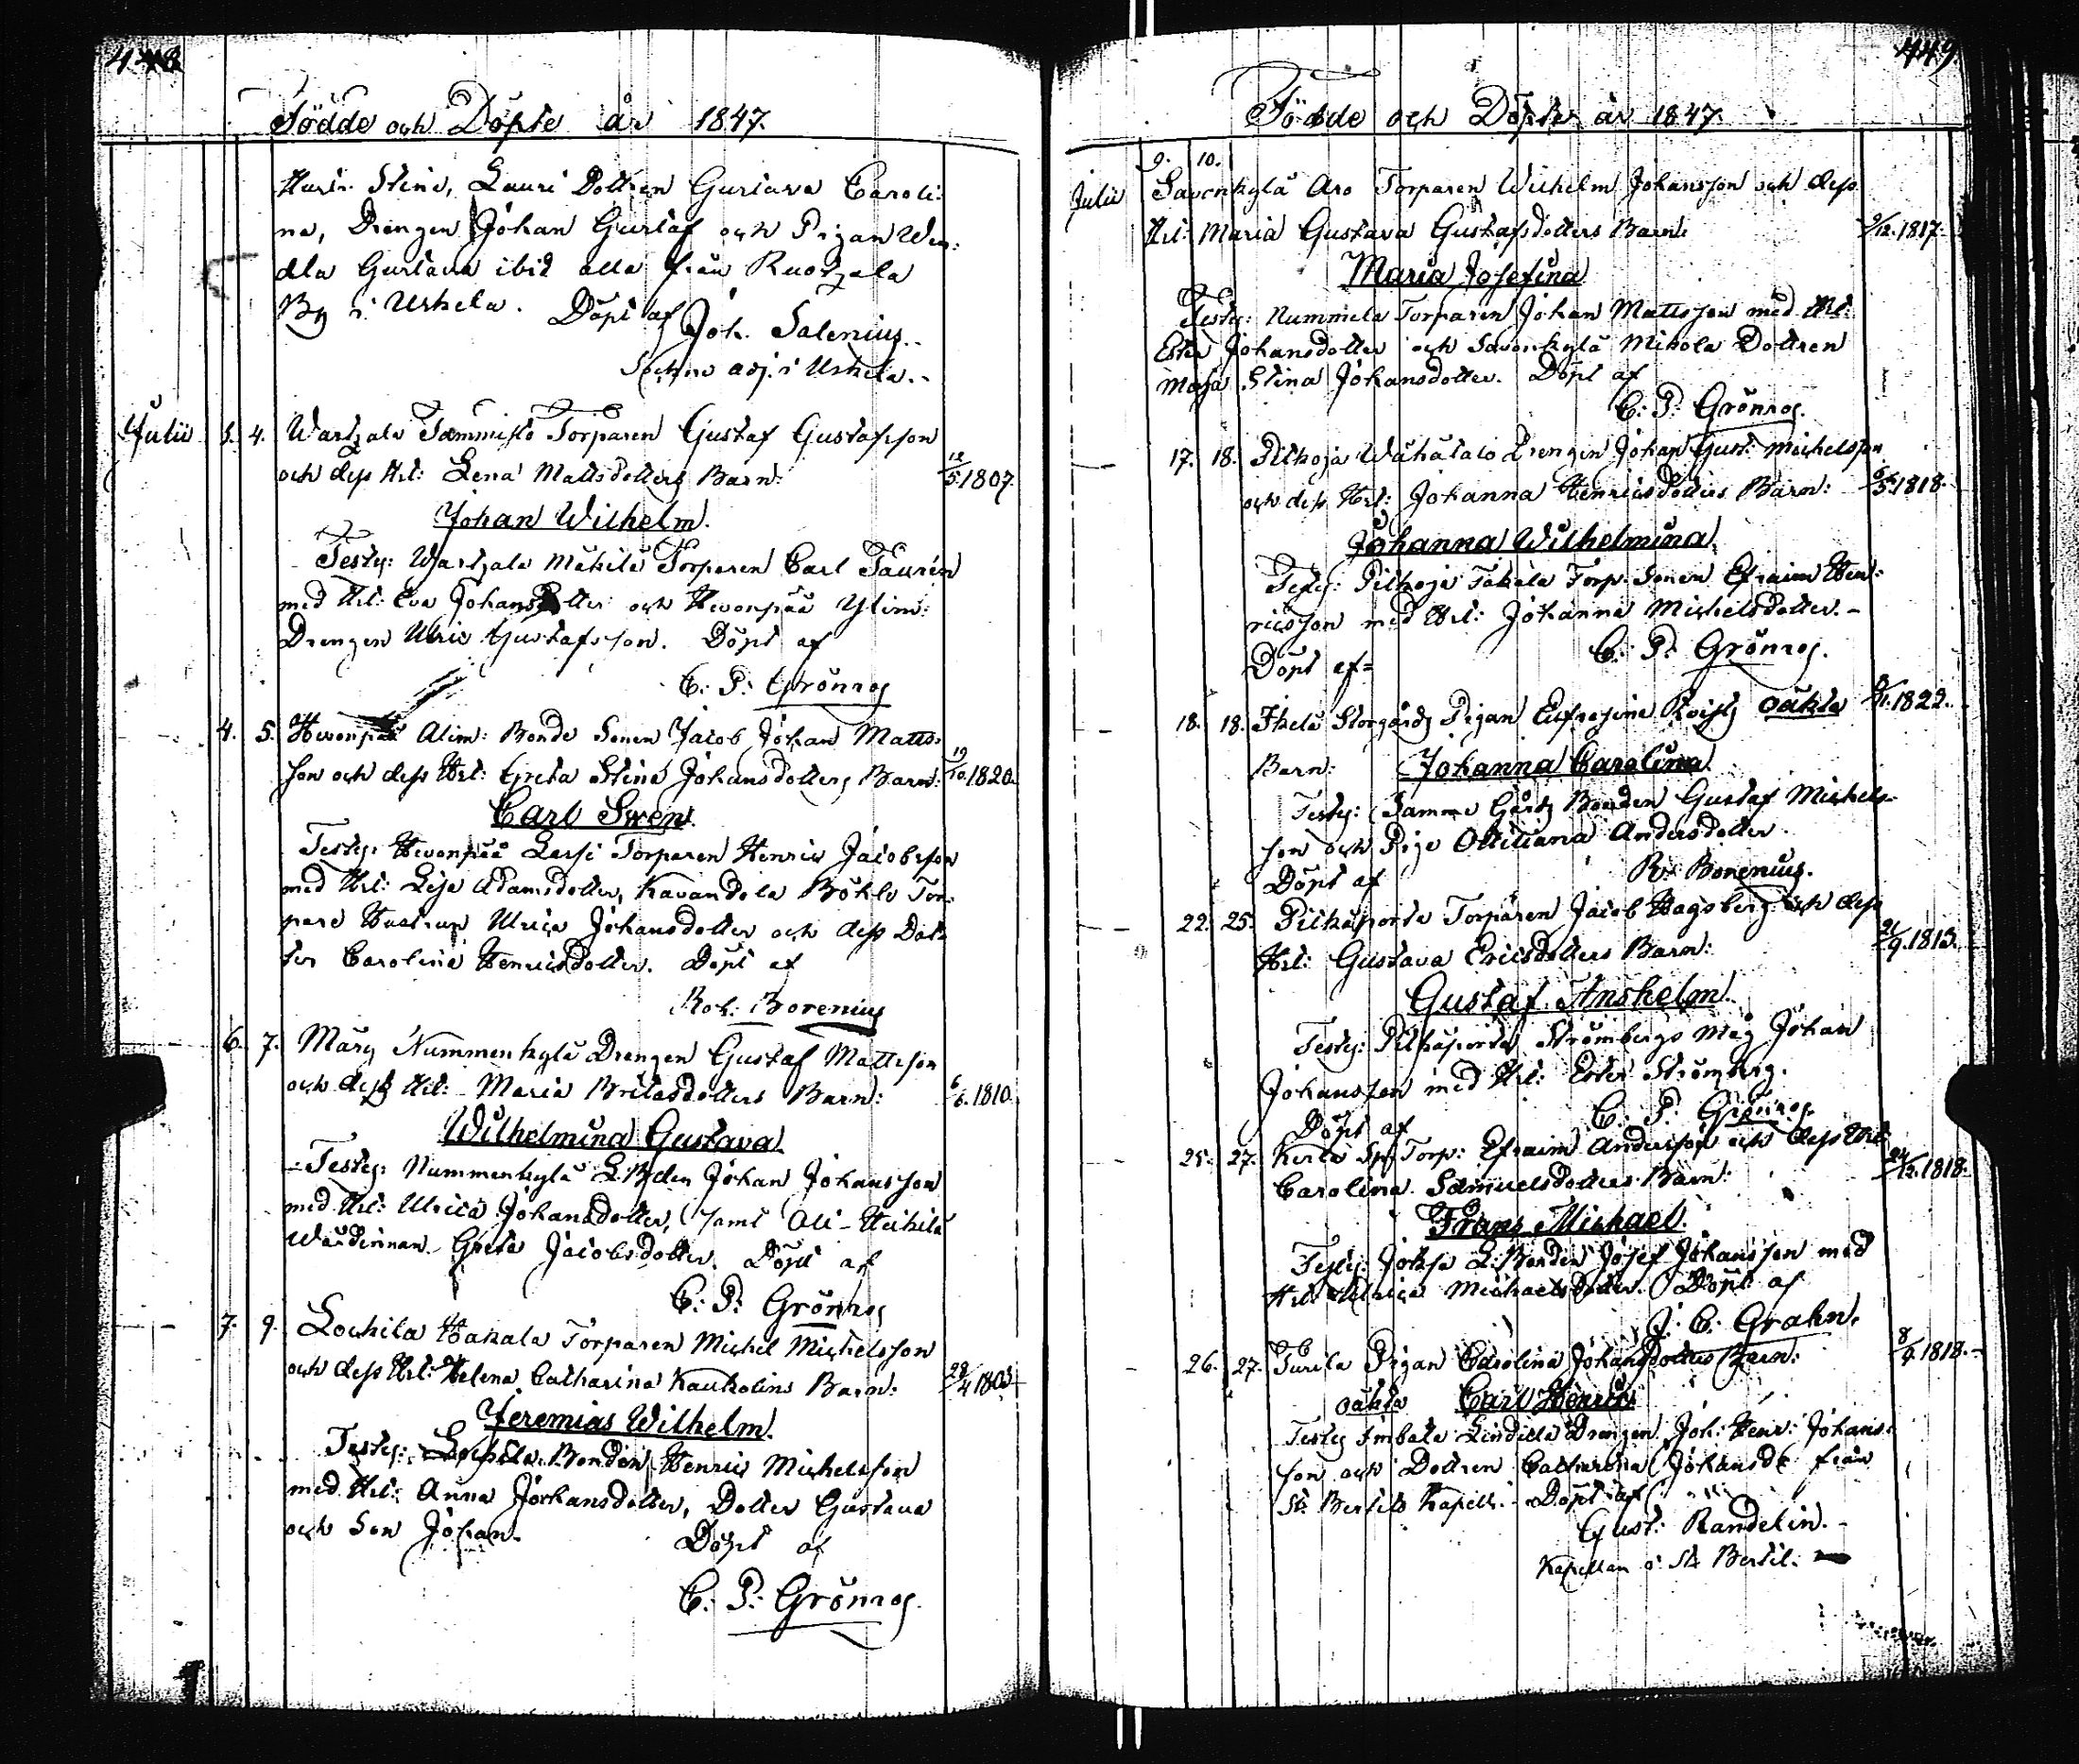 448
Födde och Döpte år 1847.
Hustr. Stina, Lauri Dottren Gustava Caroli:
na, Drengen Johan Gustaf och Pigan Wen:
dla Gustava ibid alla från Ruotzala
By i Uskela. Döpt af
Joh. Salenius.
Sockne adj. i Uskela.
Julii 3. 4. Wartzala Tammisto Torparen Gustaf Gustafsson
och dess Hst: Lena Mattsdotters Barn: 12/5. 1807.
Johan Wilhelm.
Testes: Wartzala Mäkilä Torparen Carl Taurén
med Hst: Eva Johansdotter och Hevonpää Ylim:
Drengen Ulric Gustafsson. Döpt af
C: P: Grönros
4. 5. Hevonpää Alim: Bonde Sonen Jacob Johan Matts:
son och dess Hst: Greta Stina Johansdotters Barn: 19/10. 1820.
Carl Sven.
Testes: Hevonpää Lassi Torparen Henric Jacobsson
med Hst: Lisa Adamsdotter, Kavandola Böhle Tor:
pare Hustrun Ulrica Johansdotter och dess Dot:
ter Carolina Henricsdotter. Döpt af
Rob: Borenius
6. 7. Märy Nummenkylä Drengen Gustaf Mattsson
och dess Hst: Maria Britasdotters Barn: 6/6. 1810.
Wilhelmina Gustava.
Testes: Nummenkylä L:Bden Johan Johansson
med Hst: Ulrica Johansdotter, samt Ali-Heikilä
Wärdinnan Greta Jacobsdotter. Döpt af
C: P: Grönros
7. 9. Lockila Hakala Torparen Michel Michelsson
och dess Hst: Helena Catharina Kaukolins Barn: 28/4 1803
Jeremias Wilhelm.
Testes: Lockila Bonden Henric Michelsson
med Hst: Anna Johansdotter, Dotter Gustava
och Son Johan. Döpt af
C: P: Grönros.
449
Födde och Döpte år 1847.
Julii 9. 10. Savonkylä Aro Torparen Wilhelm Johansson och dess
Hst: Maria Gustava Gustafsdotters Barn: 9/12. 1817.
Maria Josefina
Testes: Nummela Torparen Johan Mattsson med Hst:
Ester Johansdotter och Savonkylä Mikola Dottren
Maja Stina Johansdotter. Döpt af
C: P: Grönros.
17. 18. Pitkoja Wähätalo Drengen Johan Gust: Michelsson
och dess Hst: Johanna Henricsdotters Barn: 1818.
Johanna Wilhelmina.
Testes: Pitkoja Takala Torp: Sonen Efraim Hen:
ricsson med Hst: Johanna Michelsdotter.
Döpt af= C: P: Grönros.
18. 18. Storgårds Pigan Eufrosine oäkta 1822.
Barn: Johanna Carolina
Testes: Samma Gårds Bonden Gustaf Michels:
son och Piga Ottiliana Andersdotter.
Döpt af R: Borenius.
22. 25. Pitkäporta Torparen Jacob Hagsberg och dess
Hst: Gustava Ericsdotters Barn: 21/9. 1813.
Gustaf Anshelm.
Testes: Pitkäporta Strömbergs Måg Johan
Johansson med Hst: Ester Strömberg.
Döpt af C: P: Grönros.
25. 27. Kerta Sp: Torp: Efraim Andersson och dess Hst:
Carolina Samuelsdotters Barn: 24/12. 1818.
Frans Michael.
Testes: Joksa L:Bonden Josef Johansson med
Hst: Ulrica Michaelsdotter. Döpt af
J. C. Grahn.
26. 27. Turila Pigan Carolina Johansdotters Barn: 8/9. 1818.
oäkta Carl Henric
Testes Imbala Lindilä Drengen Joh: Henr: Johans:
son och Dottren Catharina Johansdr från
St: Bertils Kapell. Döpt af
Gust: Randelin.
Kapellan i St: Bertil.